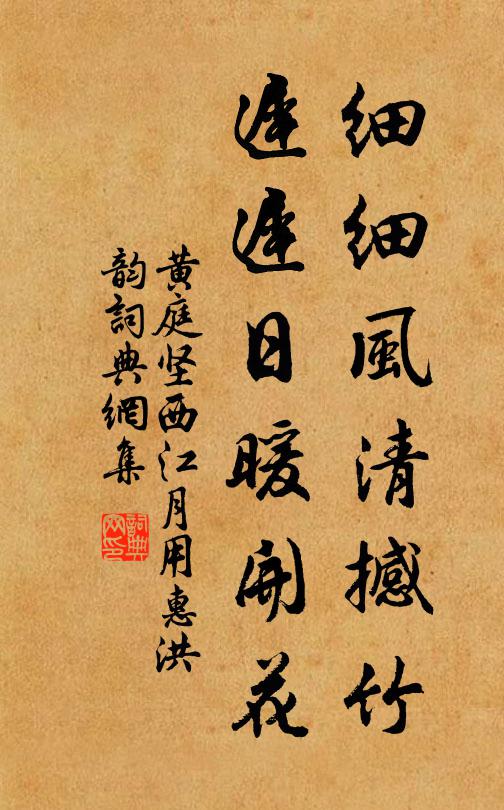 细细風清撼竹
遲遲日暖開花
黄庭坚西江月用惠洪
韵詞典網集
詞典
网印